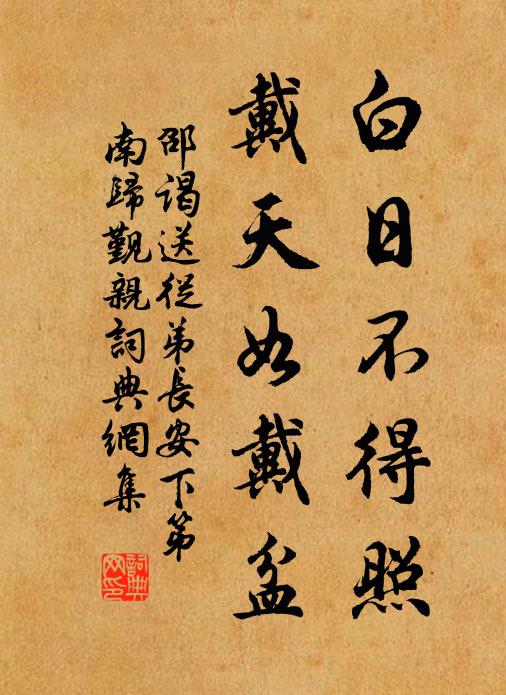 白日不得照
戴天如戴盆
邵谒送從弟長安下第
南歸覲親詞典網集
詞典
网印